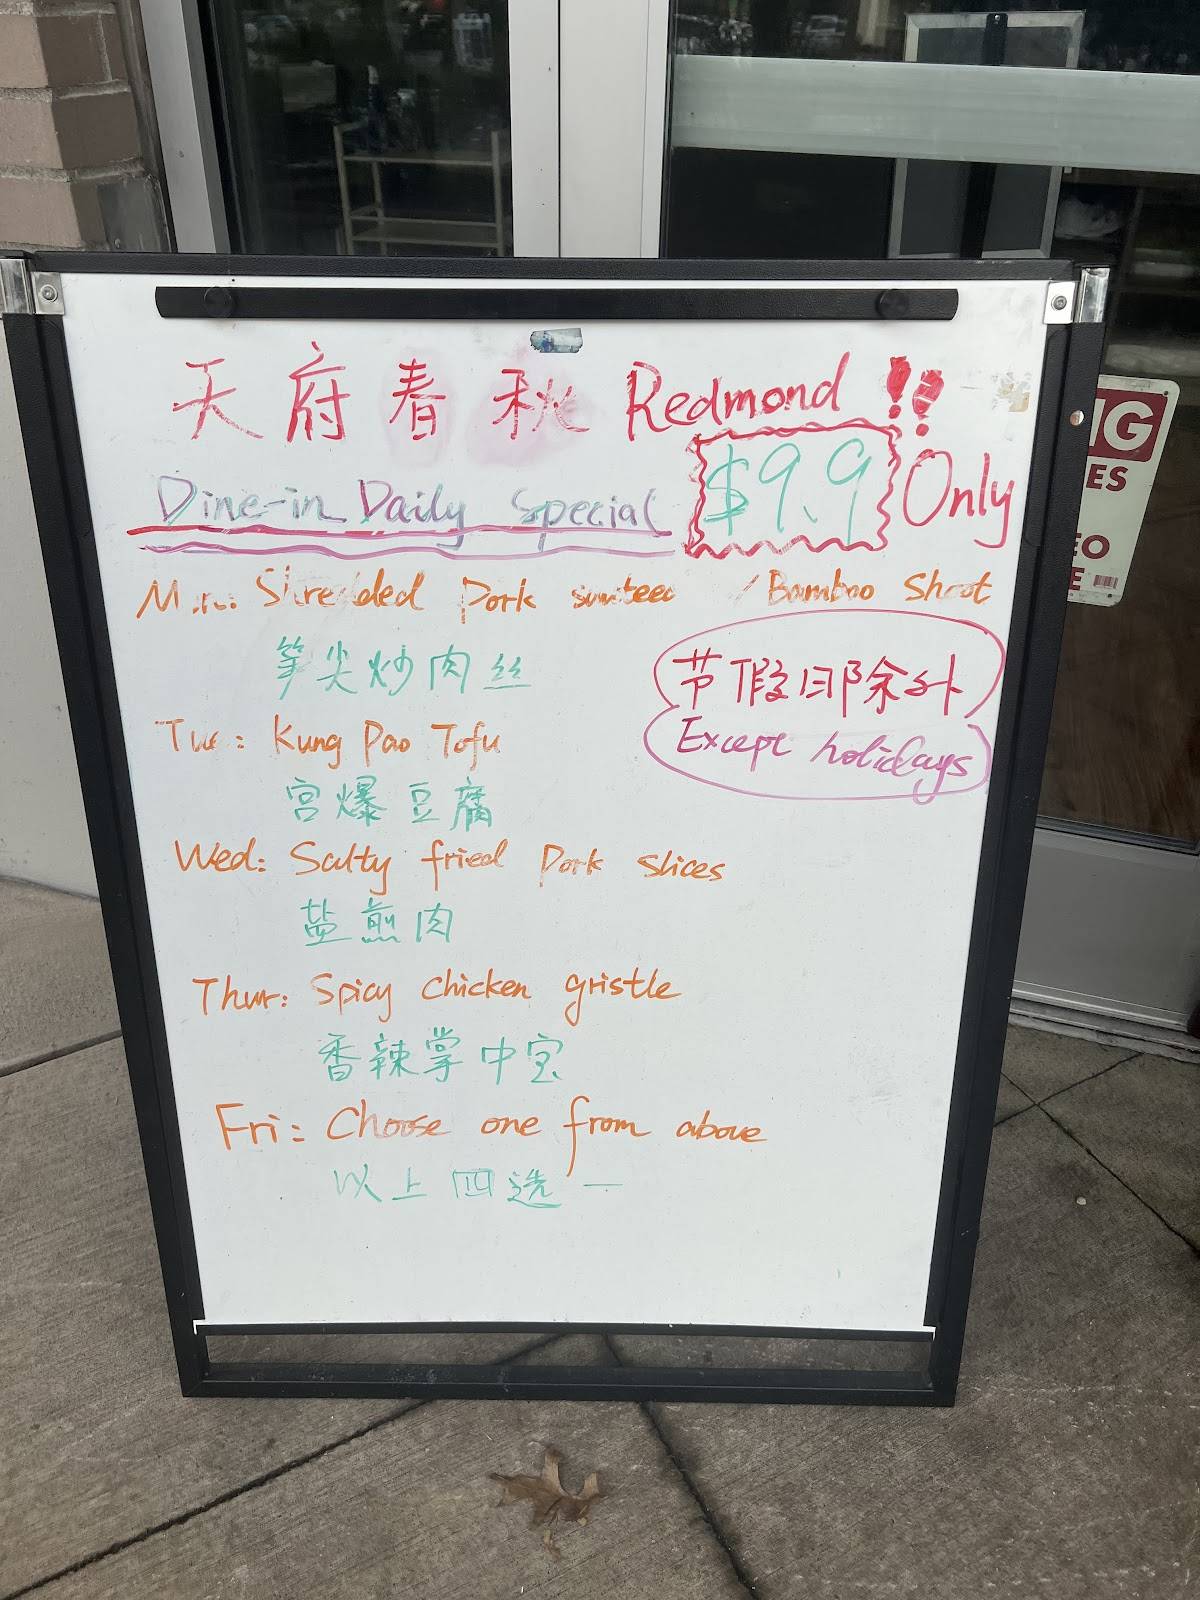 天府春秋 Redmond !!
Dine-in Daily Special $9.9 Only
Mon: Shredded Pork sauteed w/ Bamboo Shoot
笋尖炒肉丝
节假日除外
Tue: Kung Pao Tofu
Except holidays
宫爆豆腐
Wed: Salty fried Pork slices
盐煎肉
Thur: Spicy chicken gristle
香辣掌中宝
Fri: Choose one from above
以上四选一